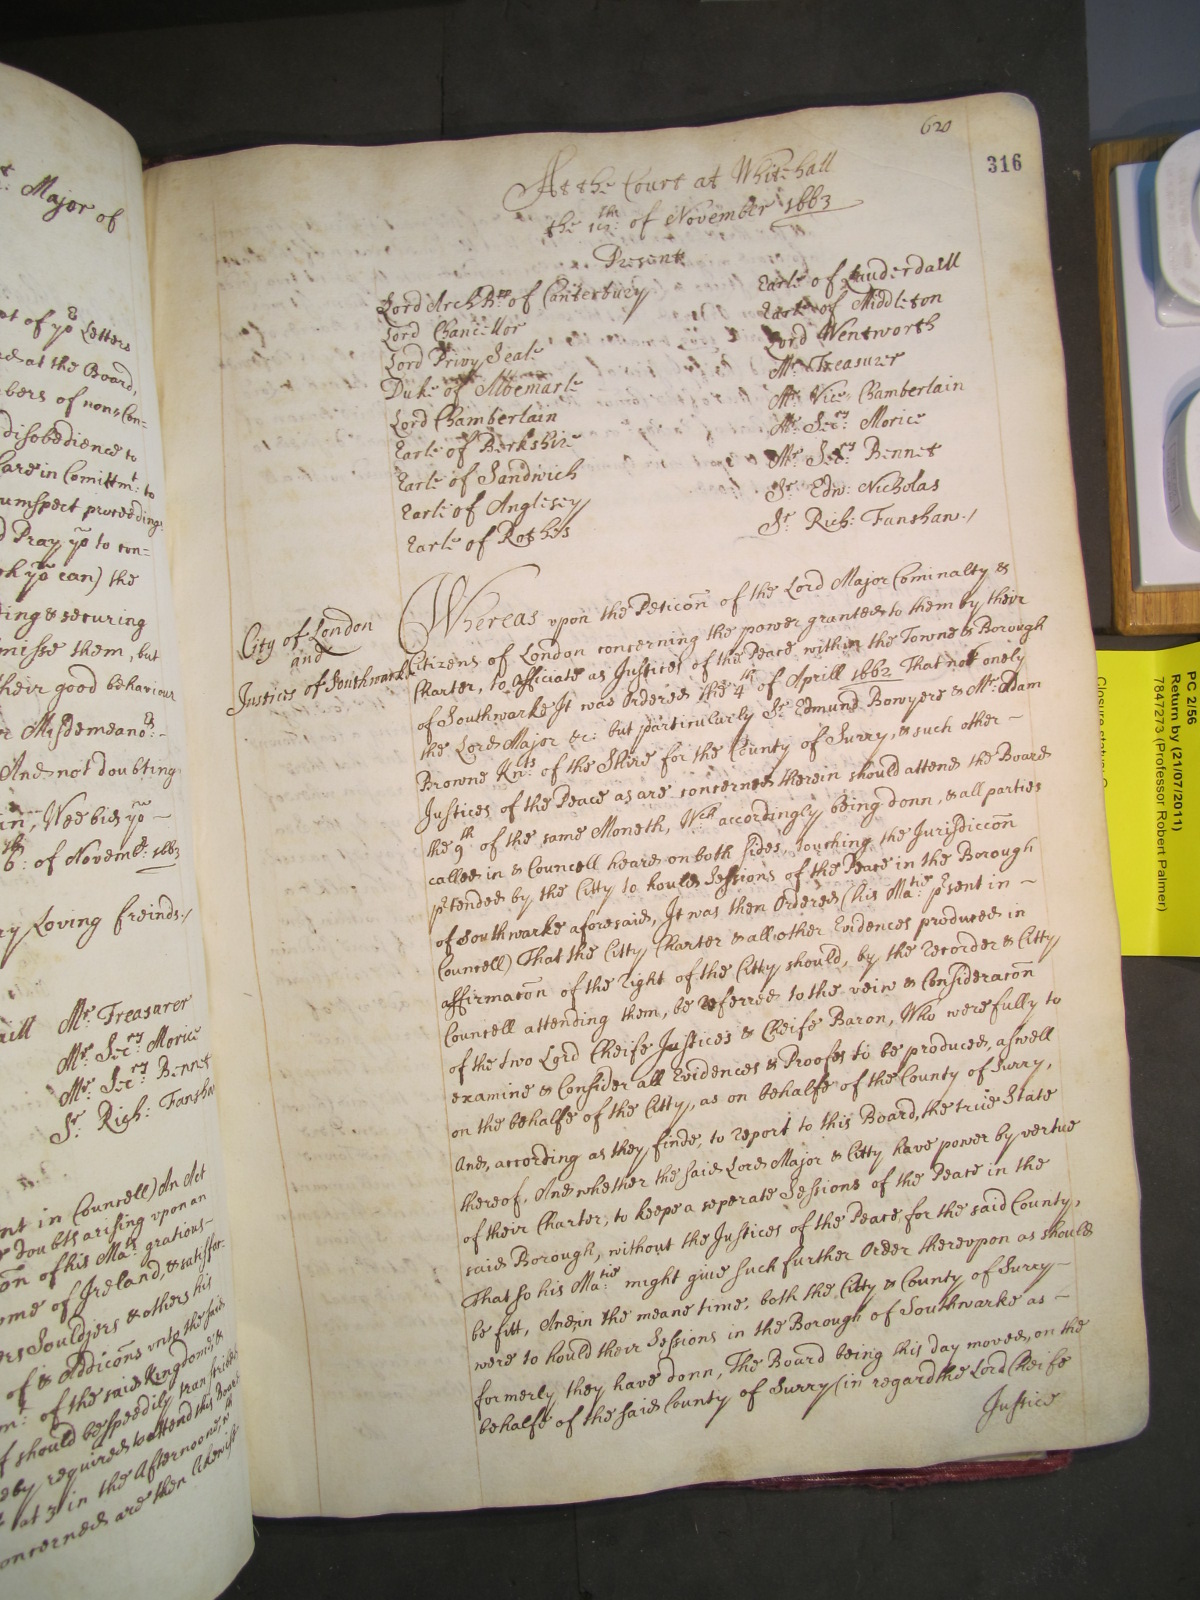 t: Major of
pt of yo:r Letters
red at the Board,
bers of non=Con=
disobedience to
Care in Comittm:t to
umspect proceeding
d Pray yo:u to con=
yo:u can) the
ing & securing
misse them, but
their good behaviour
r Misdemeano:rs -
And not doubting
in, Wee bid yo:u -
6: of Novemb:r 1663
ry Loving freinds./
aill Mr: Treasurer
Mr: Sec:ry Morice
Mr: Sec:ry Bennet
Sr: Rich: Fansha
nt in Councell) An Act
doubts arising upon an
on of his Ma:ts gratious-
ome of Ireland, & satisfac:
ers Souldjers & others his
of & Addicons unto the said
m:t of the said Kingdome, &
f should be speedily transcribed
eby required to attend this Board
at 3 in the Afternoone,
oncerned are then likewise
620
316
At the Court at Whitehall
the th: of November 1663
Present
Lord ArchBpp of Canterbury
Lord Chancellor
Lord Privy Seale
Duke of Albemarle
Lord Chamberlain
Earle of Berkshire
Earle of Sandwich
Earle of Anglesey
Earle of Rothes
Earle of Lauderdaill
Earle of Middleton
Lord Wentworth
Mr: Treasurer
Mr: Vice Chamberlain
Mr: Sec:ry Morice
Mr: Sec:ry Bennet
Sr: Edw: Nicholas
Sr: Rich: Fanshaw./
City of London
and
Justices of Southwark
Whereas upon the Peticon of the Lord Major Cominalty &
Citizens of London concerning the power granted to them by their
Charter, to officiate as Justices of the Peace within the Towne & Borough
of Southwarke It was Ordered the 4th of Aprill 1662 That not onely
the Lord Major &c: but particularly Sr: Edmund Bowyer & Mr: Adam
Browne Kn:ts of the Shire for the County of Surry, & such other -
Justices of the Peace as are concerned therein should attend the Board
the 9th: of the same Moneth, Wch accordingly being donn, & all parties
called in & Councell heard on both sides, touching the Jurisdiccon
p:rtended by the Citty to hould Sessions of the Peace in the Borough
of Southwarke aforesaid, It was then Ordered (his Ma:tie p:rsent in -
Councell) That the Citty Charter & all other Evidences produced in
affirmacon of the Right of the Citty should, by the Recorder & Citty
Councell attending them, be referred to the veiw & Consideracon
of the two Lord Cheife Justices & Cheife Baron, Who were fully to
examine & Consider all Evidences & Proofes to be produced, aswell
on the behalfe of the Citty, as on behalfe of the County of Surry,
And, according as they finde, to report to this Board, the true State
thereof. And whether the said Lord Major & Citty have power by vertue
of their Charter, to keepe a seperate Sessions of the Peace in the
said Borough, without the Justices of the Peace for the said County,
That so his Ma:tie might give such further Order thereupon as should
be fitt, And in the meane time, both the Citty & County of Surry -
were to hould their Sessions in the Borough of Southwarke as -
formerly they have donn, The Board being this day moved, on the
behalfe of the said County of Surry (in regard the Lord Cheife
Justice
PC 2/56
Return by (21/07/2011)
7847273 (Professor Robert Palmer)